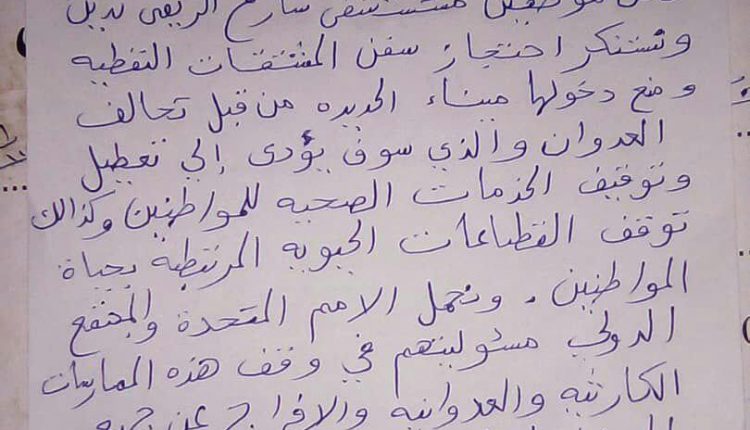 موظفين مستشفى شارع
ونستنكر احتجاز سفن المشتقات النفطيه
ومنع دخولها ميناء الحديده من قبل تحالف
العدوان والذي سوف يؤدى إلي تعطيل
وتوقيف الخدمات الصحيه للمواطنين وكذالك
توقف القطاعات الحيويه المرتبطه بحياة
المواطنين . ونحمل الامم المتحدة والمجتمع
الدولي مسئوليتهم في وقف هذه الممارسات
الكارثيه والعدوانيه والافراج عن